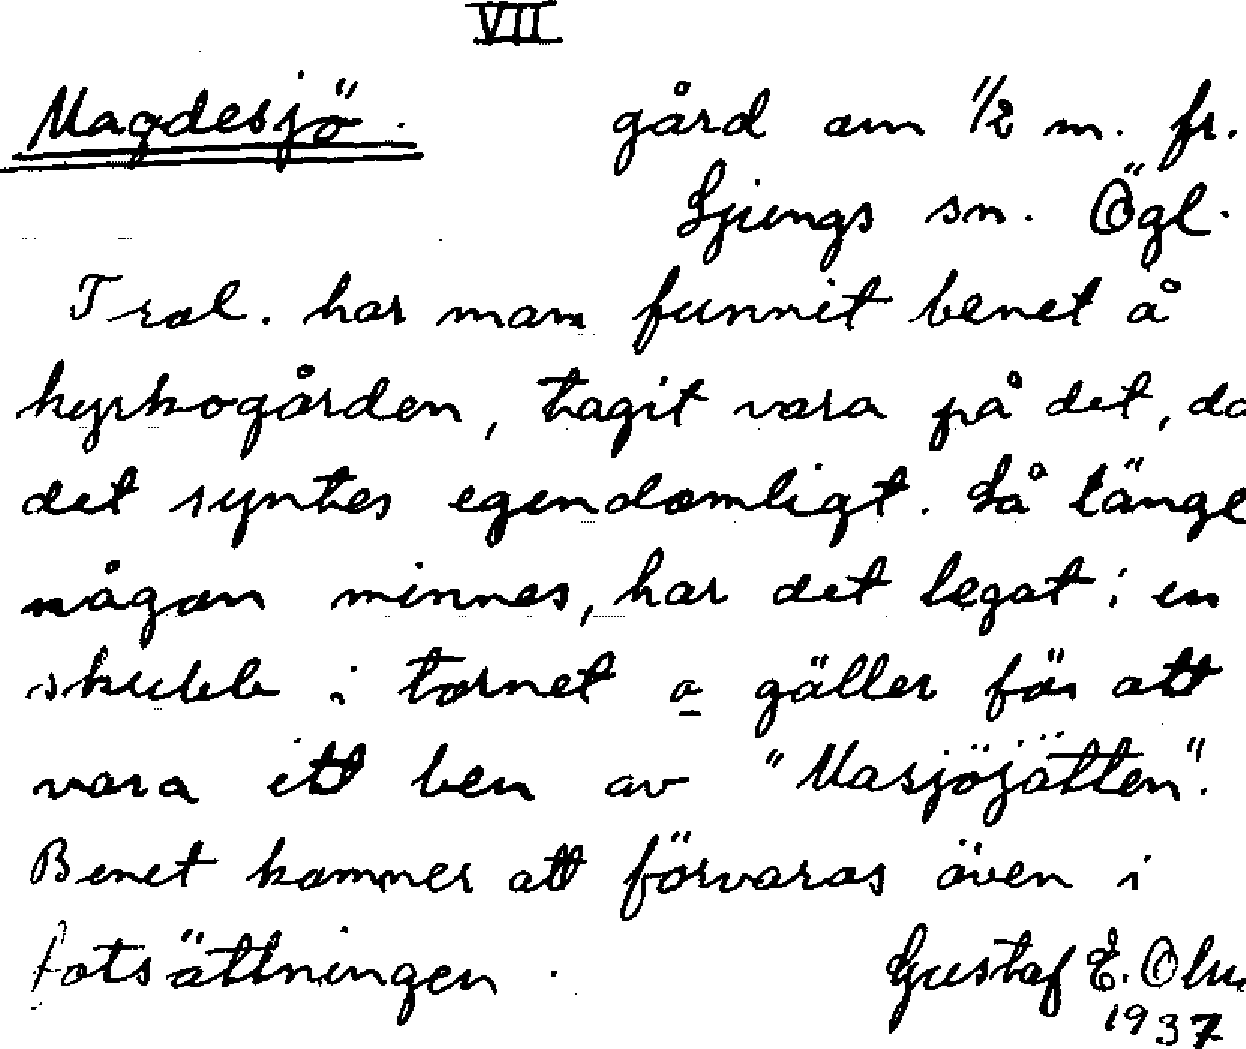 VII
Magdesjö. gård om 1/2 m. fr.
Ljungs sn. Ögl.
Trol. har man funnit benet å
kyrkogården, tagit vara på det, då
det syntes egendomligt. Så länge
någon minnes, har det legat i en
skubb i tornet o gäller för att
vara ett ben av "Masjöjätten".
Benet kommer att förvaras även i
fortsättningen.
Gustaf E. Olu
1937